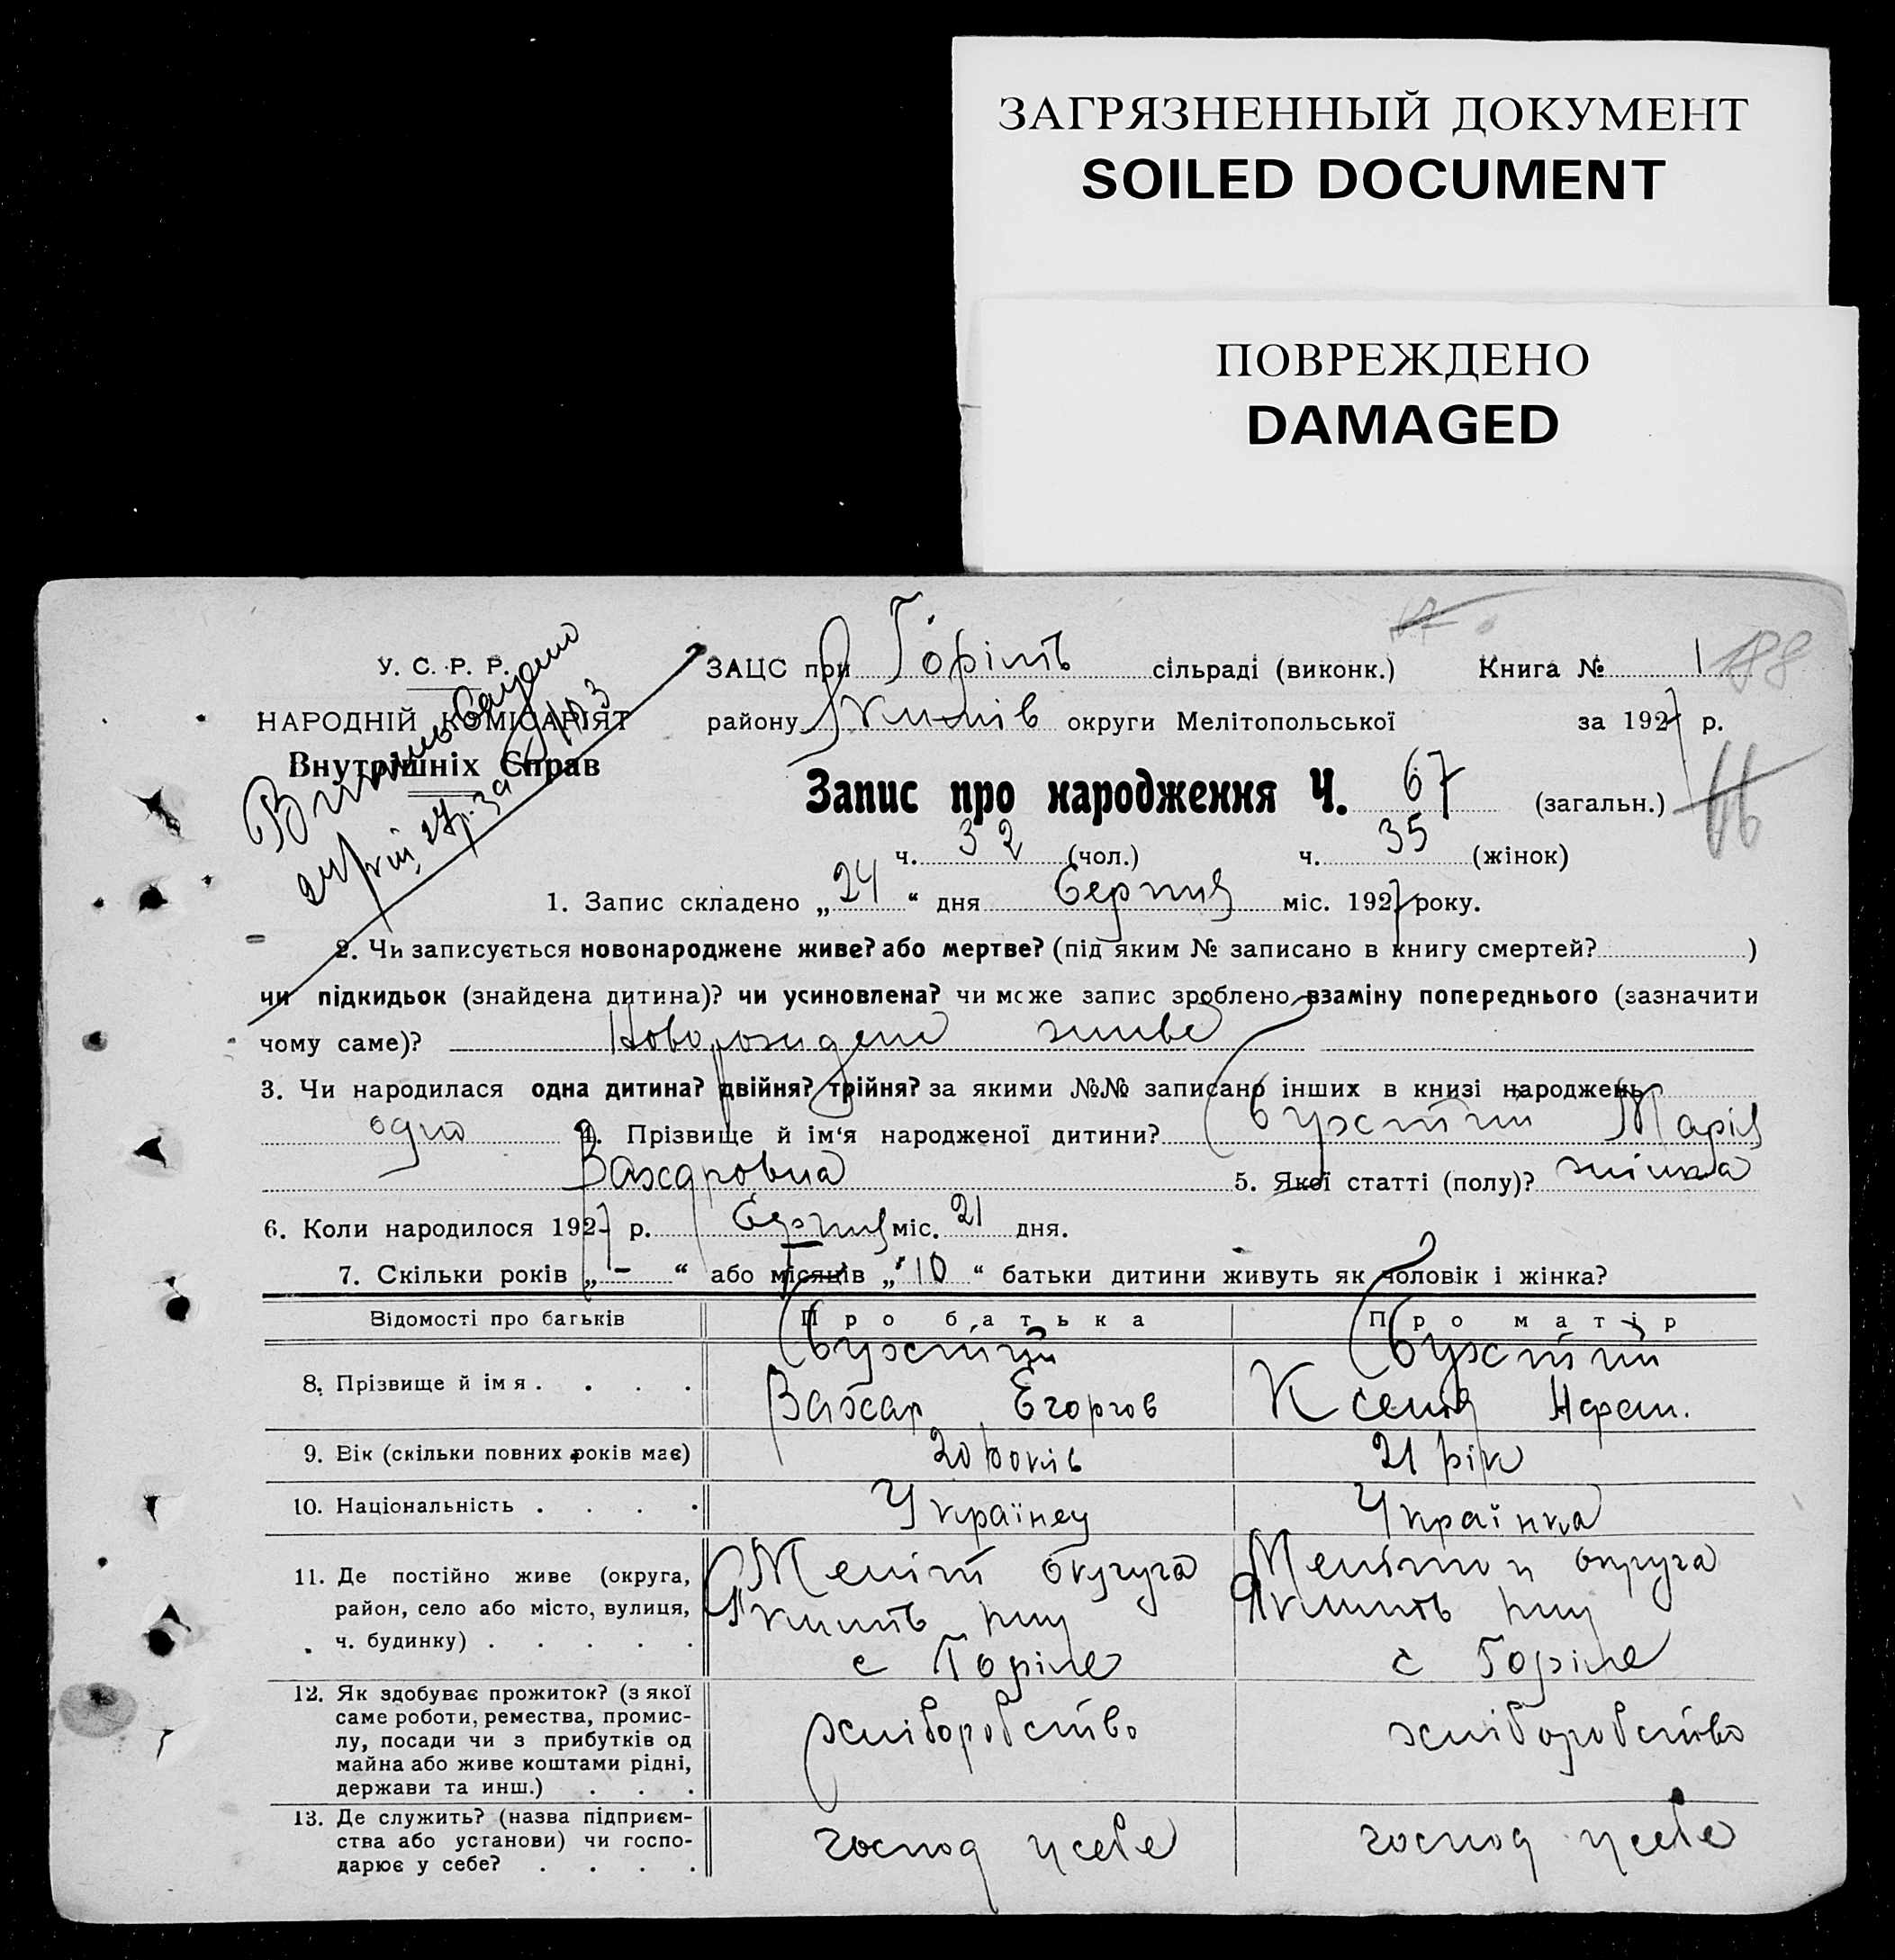 ЗАГРЯЗНЕННЫЙ ДОКУМЕНТ
SOILED DOCUMENT
ПОВРЕЖДЕНО
DAMAGED
У. С. Р. Р. ЗАЦС при Горінь сільраді (виконк.) Книга № 1 188
НАРОДНІЙ КОМІСАРІЯТ району округи Мелітопольської за 1927 р.
Внутрішніх Справ
Запис про народження Ч. 67 (загальн.) 66
ч. 32 (чол.) ч. 35 (жінок)
1. Запис складено „24“ дня Серпня міс. 1927 року.
2. Чи записується новонароджене живе? або мертве? (під яким № записано в книгу смертей? )
чи підкидьок (знайдена дитина)? чи усиновлена? чи може запис зроблено взаміну попереднього (зазначити
чому саме)? живе
3. Чи народилася одна дитина? двійня? трійня? за якими №№ записано інших в книзі народжень
одно 4. Прізвище й ім‘я народженої дитини? Марія
Захаровна 5. Якої статті (полу)? жінка
6. Коли народилося 1927 р. Серпня міс. 21 дня.
7. Скільки років „ - “ або місяців „ 10 “ батьки дитини живуть як чоловік і жінка?
Відомості про батьків Про батька Про матір
8. Прізвище й імя . . . .
Захар Егоров Ксенія
9. Вік (скільки повних років має) 20 років 21 рік
10. Національність . . . . Українец Українка
11. Де постійно живе (округа, Меліт округа Мелітоп округа
район, село або місто, вулиця,
ч. будинку) . . . . . с Горіле с Горіле
12. Як здобуває прожиток? (з якої
саме роботи, ремества, промис-
лу, посади чи з прибутків од хліборобство хліборобство
майна або живе коштами рідні,
держави та инш.) . . .
13. Де служить? (назва підприєм-
ства або установи) чи госпо- господ у себе господ у себе
дарює у себе? . . . .